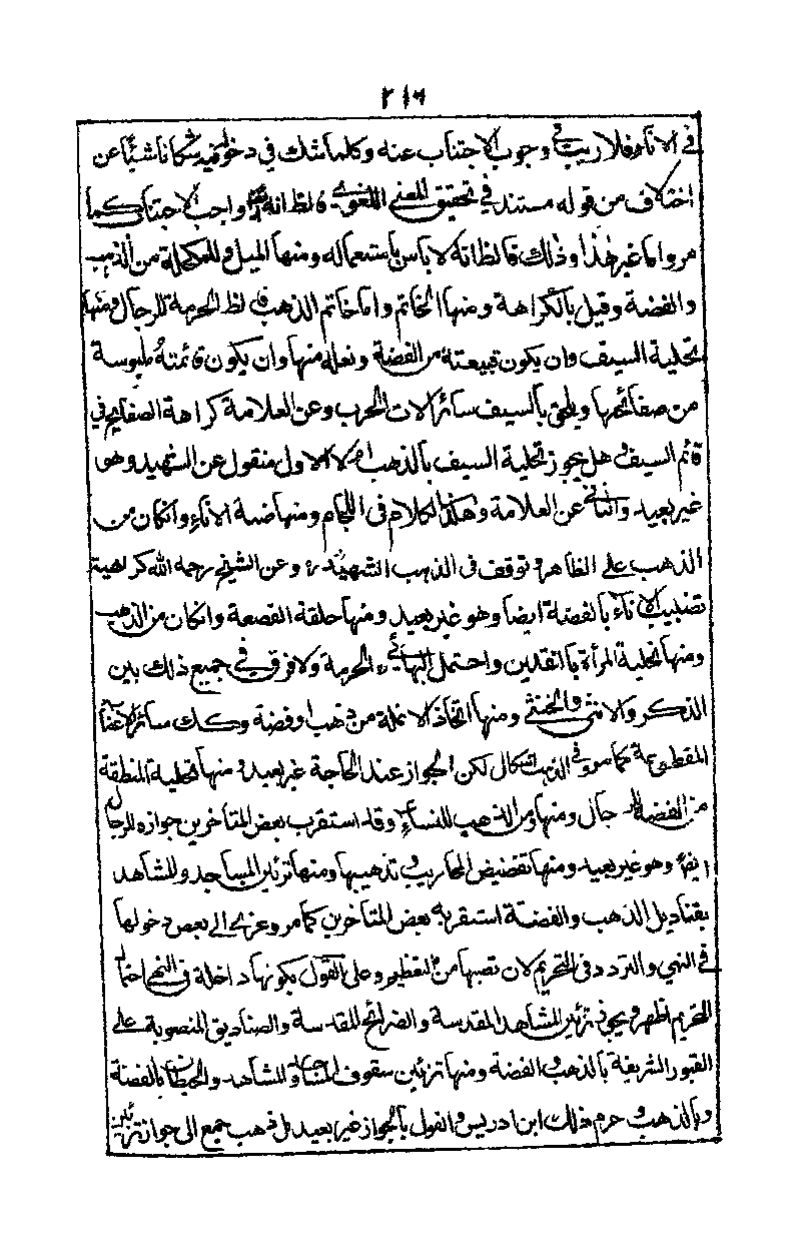 ٢١٦
في الاناء فلا ريب في وجوب الاجتناب عنه وكلما شك في دخوله فيه شكا ناشئا عن
اختلاف من قوله مستند في تحقيق المعنى اللغوي فالظ انه واجب الاجتناب كما
مر واما غير هذا وذلك فالظ انه لا باس باستعماله ومنها الميل والمكحلة من الذهب
والفضة وقيل بالكراهة ومنها الخاتم واما خاتم الذهب فالظ الحرمة للرجال ومنها
تحلية السيف وان يكون قبيعته من الفضة ونعاله منها وان يكون قائمته ملبوسة
من صفائحها ويلحق بالسيف سائر الات الحرب وعن العلامة كراهة الصفايح في
قائم السيف وهل يجوز تحلية السيف بالذهب ام لا الاول منقول عن الشهيد وهو
غير بعيد والثاني عن العلامة وهكذا الكلام في اللجام ومنها ضبة الاناء وانكان من
الذهب على الظاهر وتوقف في الذهب الشهيد ره وعن الشيخ رحمه الله كراهية
تضبيب الاناء بالفضة ايضا وهو غير بعيد ومنها حلقة القصعة وانكان من الذهب
ومنها تحلية المرأة بالنقدين واحتمل البهائي ره الحرمة ولا فرق في جميع ذلك بين
الذكر والانثى والخنثى ومنها اتخاذ الانملة من ذهب او فضة وكذلك سائر الاعضاء
المقطوعة كما مر وفي الذهب اشكال لكن الجواز عند الحاجة غير بعيد ومنها تحلية المنطقة
من الفضة للرجال ومنها ومن الذهب للنساء وقد استقرب بعض المتاخرين جوازه للرجال
ايضا وهو غير بعيد ومنها تفضيض المحاريب وتذهيبها ومنها تزئين المساجد والمشاهد
بقناديل الذهب والفضة استقربه بعض المتاخرين كما مر وعزي الى بعض دخولها
في النهي والتردد في التحريم لان نصبها من التعظيم وعلى القول بكونها داخلة في النهي احتمال
التحريم اظهر ويجوز تزئين المشاهد المقدسة والضرائح المقدسة والصناديق المنصوبة على
القبور الشريفة بالذهب والفضة ومنها تزئين سقوف المساجد والمشاهد والحيطان بالفضة
وبالذهب وحرم ذلك ابن ادريس والقول بالجواز غير بعيد بل ذهب جمع الى جواز تزئين